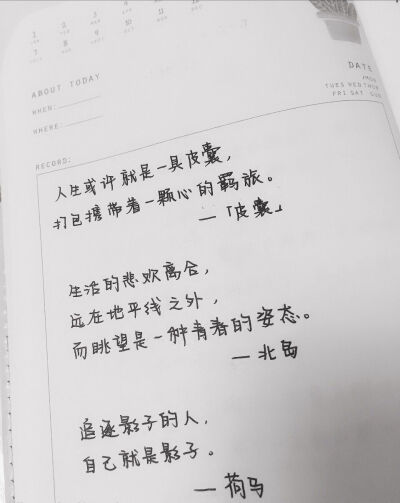 1 2 3 4 5
7 8 9 10 11
ABOUT TODAY
WHEN:
WHERE:
DATE
TUES WED THUR
FRI SAT SUN
RECORD:
人生或许就是一具皮囊,
打包携带着一颗心的羁旅。
—「皮囊」
生活的悲欢离合,
远在地平线之外,
而眺望是一种青春的姿态。
— 北岛
追逐影子的人,
自己就是影子。
— 荷马